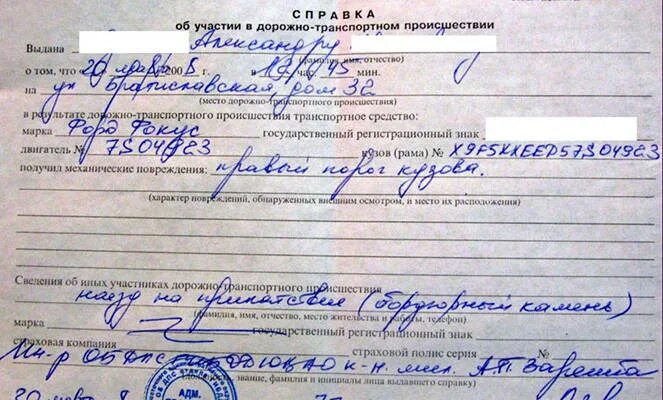 СПРАВКА
об участии в дорожно-транспортном происшествии
Выдана Александру
(фамилия, имя, отчество)
о том, что « 20 » 2008 г. в час. 45 мин.
на ул Братиславская, дом 32
(место дорожно-транспортного происшествия)
в результате дорожно-транспортного происшествия транспортное средство:
марка Форд Фокус государственный регистрационный знак
двигатель № 7S04983 кузов (рама) № X9F5XXEED57S04983
получил механические повреждения: правый порог кузова.
(характер повреждений, обнаруженных внешним осмотром, и место их расположения)
Сведения об иных участниках дорожно-транспортного происшествия
наезд на припатствие (бордюрный камень)
(фамилия, имя, отчество, место жительства и работы, телефон)
марка государственный регистрационный знак
страховая компания страховой полис серия №
Ин-р ОБ ДПС ЮВАО к-н. мил. А.П.
(должность, звание, фамилия и инициалы лица выдавшего справку)
20
ОБ ДПС
АДМ.